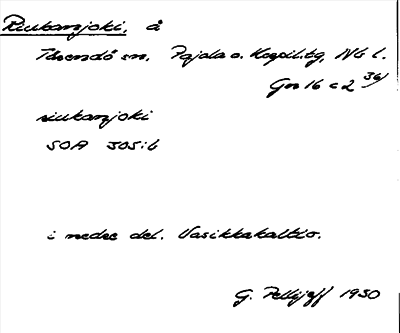 Riukanjoki, å
Tärendö sn, Pajala o. Korpil. tg, Nb l.
Gn 16 c 2 36/
riukanjoki
SOA 305:6
i nedre del. Vasikkakaltio.
G. Pellijeff 1930